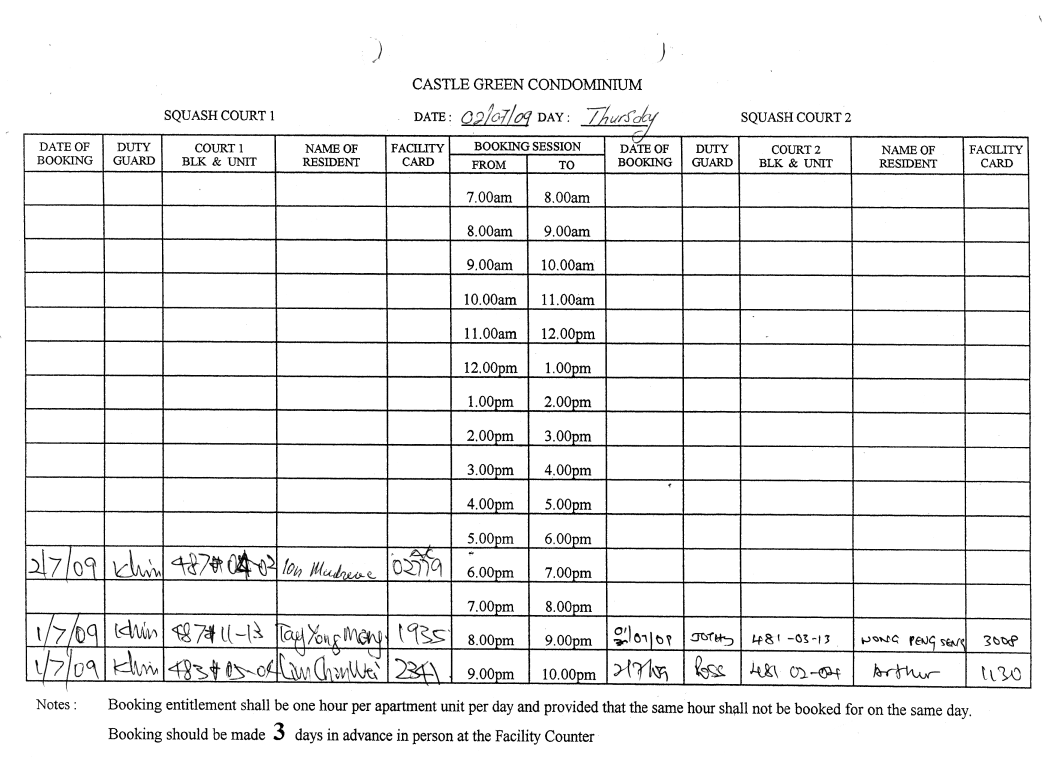 CASTLE GREEN CONDOMINIUM
SQUASH COURT 1 DATE: 02/07/09 DAY: Thursday SQUASH COURT 2
DATE OF BOOKING DUTY GUARD COURT 1 BLK & UNIT NAME OF RESIDENT FACILITY CARD BOOKING SESSION FROM TO DATE OF BOOKING DUTY GUARD COURT 2 BLK & UNIT NAME OF RESIDENT FACILITY CARD
7.00am 8.00am
8.00am 9.00am
9.00am 10.00am
10.00am 11.00am
11.00am 12.00pm
12.00pm 1.00pm
1.00pm 2.00pm
2.00pm 3.00pm
3.00pm 4.00pm
4.00pm 5.00pm
5.00pm 6.00pm
2/7/09 Khin 487# Ion 02779 6.00pm 7.00pm
7.00pm 8.00pm
1/7/09 Khin 487#11-13 Tay Yong Meng 1935 8.00pm 9.00pm /07/09 481-03-13 WONG PENG SENG 3008
1/7/09 Khin 483#05-04 2341 9.00pm 10.00pm 2/7/09 Ross 481 02-04 Arthur 1130
Notes : Booking entitlement shall be one hour per apartment unit per day and provided that the same hour shall not be booked for on the same day.
Booking should be made 3 days in advance in person at the Facility Counter